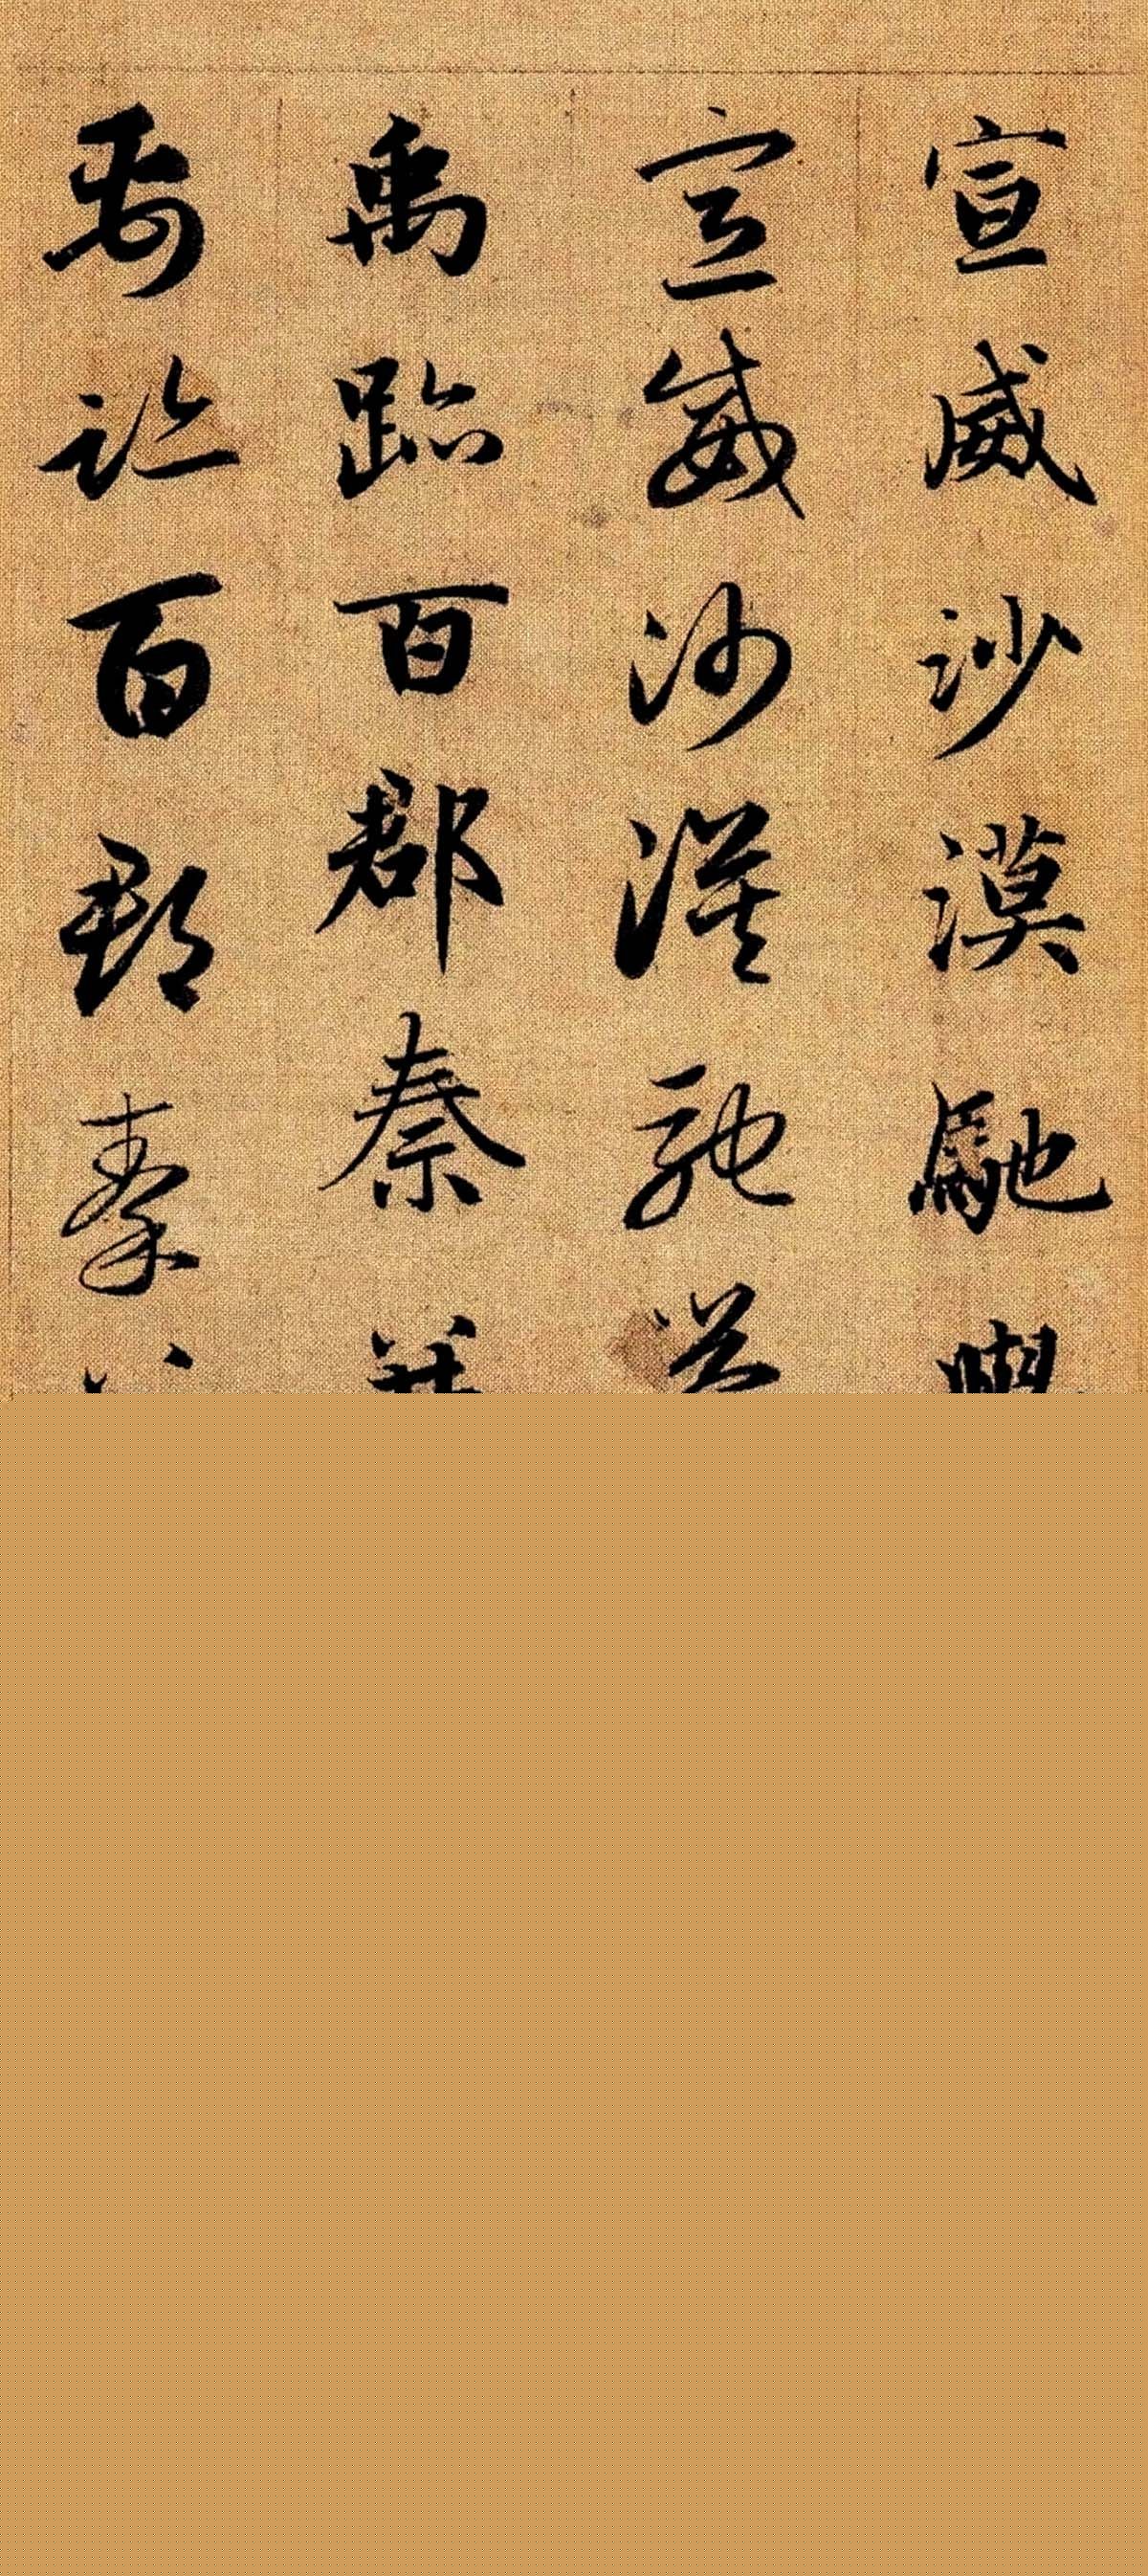 宣威沙漠馳
宣威沙漠馳
禹跡百郡秦
禹跡百郡秦